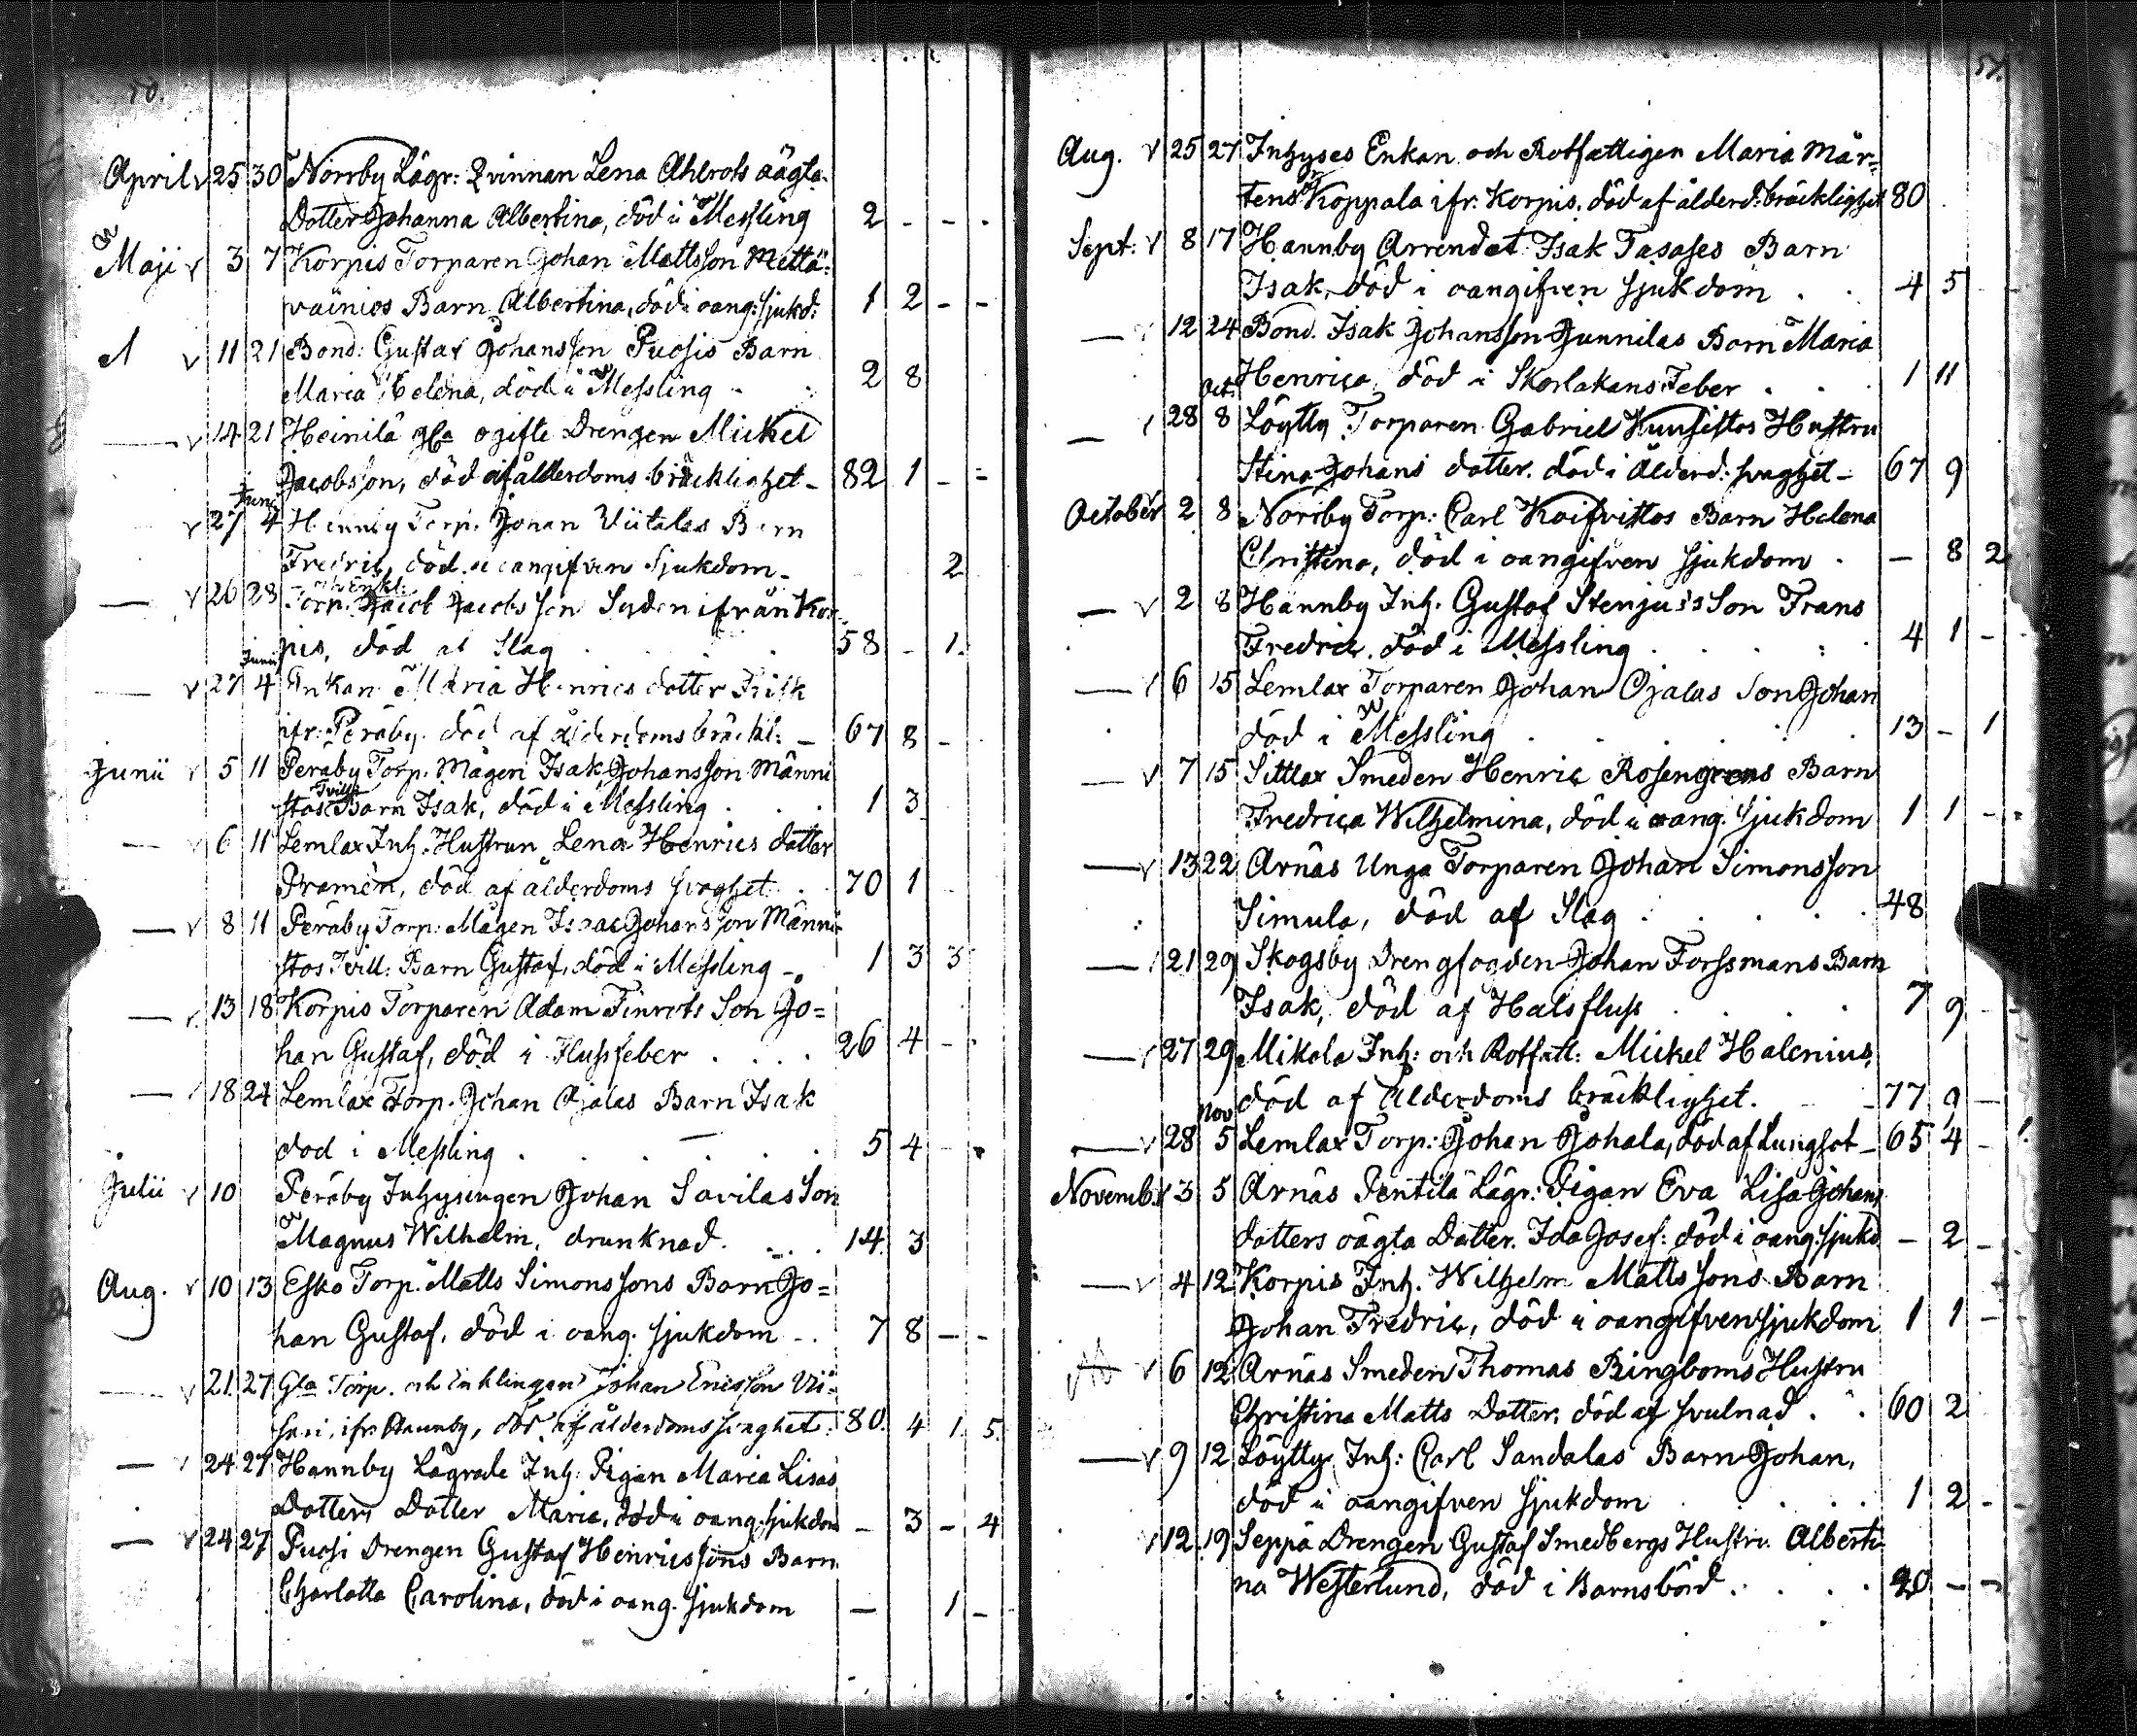 50.
April v 25 30 Norrby Lägr: Qvinnan Lena Ahlrots oägta
Dotter Johanna Albertina, död i Messling 2 - - -
Maji v 3 7 Korpis Torparen Johan Mattsson Mettä-
vainios Barn Albertina, död i oang: sjukd: 1 2 - -
v 11 21 Bond: Gustaf Johansson Puosis Barn
Maria Helena, död i Messling - 2 8
— v 14 21 Heinilä gla ogifte Drengen Mickel
Jacobsson, död af ålderdoms bräcklighet - 82 1 - -
Juni
v 27 4 Hannby Torp. Johan Viitalas Barn
Fredric, död i oangifven sjukdom - 2
och Enkl:
— v 26 28 Torp. Jacob Jacobsson Syden ifrån Kor-
pis, död af Slag 58 - 1.
Junii
— v 27 4 Enkan Maria Henrics dotter Frisk
ifr: Peräby. död af ålderdoms bräckl: - 67 8 -
Junii v 5 11 Peräby Torp. Mågen Isak Johansson Männi
Tvill:
stos Barn Isak, död i Messling . . . 1 3
— v 6 11 Lemlax Inh. Hustrun Lena Henrics dotter
Pramén, död af ålderdoms svaghet . 70 1 -
— v 8 11 Peräby Torp: Mågen Isaac Johansson Männi-
stos Tvill: Barn Gustaf, död i Messling - 1 3 3
— v 13 18 Korpis Torparen Adam Finrots Son Jo=
han Gustaf, död i Flussfeber . . . . 26 4 -
— 18 24 Lemlax Torp. Johan Ojalas Barn Isak
död i Messling . . . . . 5 4 - -
Julii v 10 Peräby Inhysingen Johan Savilas Son
Magnus Wilhelm, drunknad. - . . 14 3
Aug. v 10 13 Esko Torp. Matts Simonssons Barn Jo=
han Gustaf, död i oang. sjukdom - . 7 8 - -
— v 21. 27 Gla Torp. och Enklingen Johan Ericsson
ifr: Hannby, död af ålderdoms svaghet. 80. 4 1. 5.
— v 24 27 Hannby Lägrade Inh: Pigan Maria Lisas
Dotters Dotter Maria, död i oang. sjukdom - 3 - 4
— v 24 27 Puosi Drengen Gustaf Henricssons Barn
Charlotta Carolina, död i oang. sjukdom - 1 -
51.
Aug. v 25 27 Inhyses Enkan och Rotfattigen Maria Mår-
tens dr Koppala ifr: Korpis, död af ålderd: bräcklighet 80
Sept: v 8 17 Hannby Arrendat. Isak Tasases Barn
Isak, död i oangifven sjukdom . . 4 5 - -
— 12 24 Bond. Isak Johansson Junnilas Barn Maria
Henrica, död i Skarlakans Feber . . . 1 11
Oct.
— 28 8 Löytty Torparen Gabriel Kuusistos Hustru
Stina Johans dotter. död i Ålderd: svaghet - 67 9
October v 2 8 Norrby Torp: Carl Koifvistos Barn Helena
Christina, död i oangifven sjukdom . - 8 2
— v 2 8 Hannby Inh. Gustaf Stenjus's Son Frans
Fredric. död i Messling . . . . . 4 1 -
— 6 15 Lemlax Torparen Johan Ojalas Son Johan
död i Messling . . . . . 13 - 1
— v 7 15 Sittlax Smeden Henric Rosengrens Barn
Fredrica Wilhelmina, död i oang. sjukdom 1 1 - -
— v 13 22 Arnäs Unga Torparen Johan Simonsson
Simula, död af Slag . . . . . 48
— 21 29 Skogsby Drengfogden Johan Forssmans Barn
Isak, död af Halsfluss . . . . 7 9 -
— v 27 29 Mikola Inh: och Rotfatt: Mickel Halenius,
död af Ålderdoms bräcklighet. - 77 9 -
Nov
— v 28 5 Lemlax Torp: Johan Johala, död af Lungsot - 65 4 -
Novemb: v 3 5 Arnäs Pentilä Lägr: Pigan Eva Lisa Johans
dotters oägta Dotter. Ida Josef: död i oang. sjukd - 2 -
— v 4 12 Korpis Inh. Wilhelm Mattssons Barn
Johan Fredric, död i oangifven sjukdom 1 1 -
v 6 12 Arnäs Smeden Thomas Ringboms Hustru
Christina Matts Dotter, död af svulnad . . 60 2
— v 9 12 Löytty Inh: Carl Sandalas Barn Johan,
död i oangifven sjukdom . . . . 1 2 -
v 12 19 Seppä Drengen Gustaf Smedbergs Hustru Alberti
na Westerlund, död i Barnsbörd . . . . 20 - -